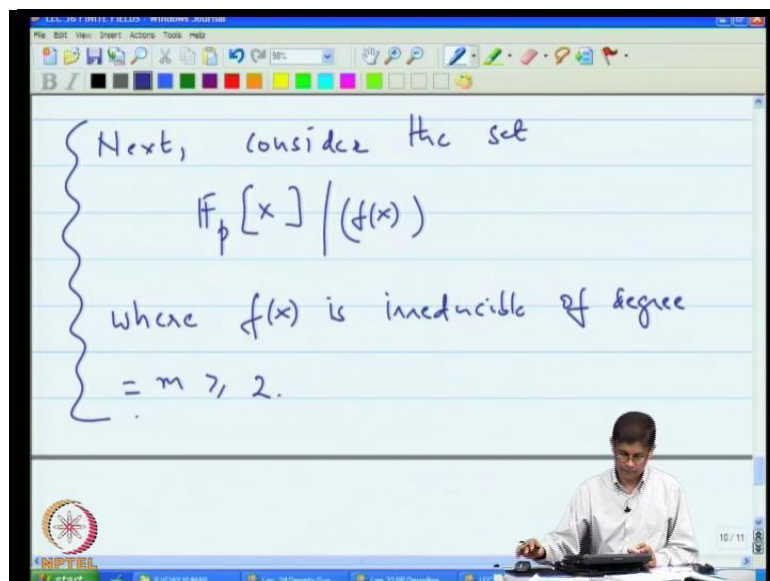 LEC 36 FINITE FIELDS - Windows Journal
File Edit View Insert Actions Tools Help
98%
B I
Next, consider the set
𝔽p [x] | (f(x))
where f(x) is irreducible of degree
= m ⩾ 2.
10/11
NPTEL
start